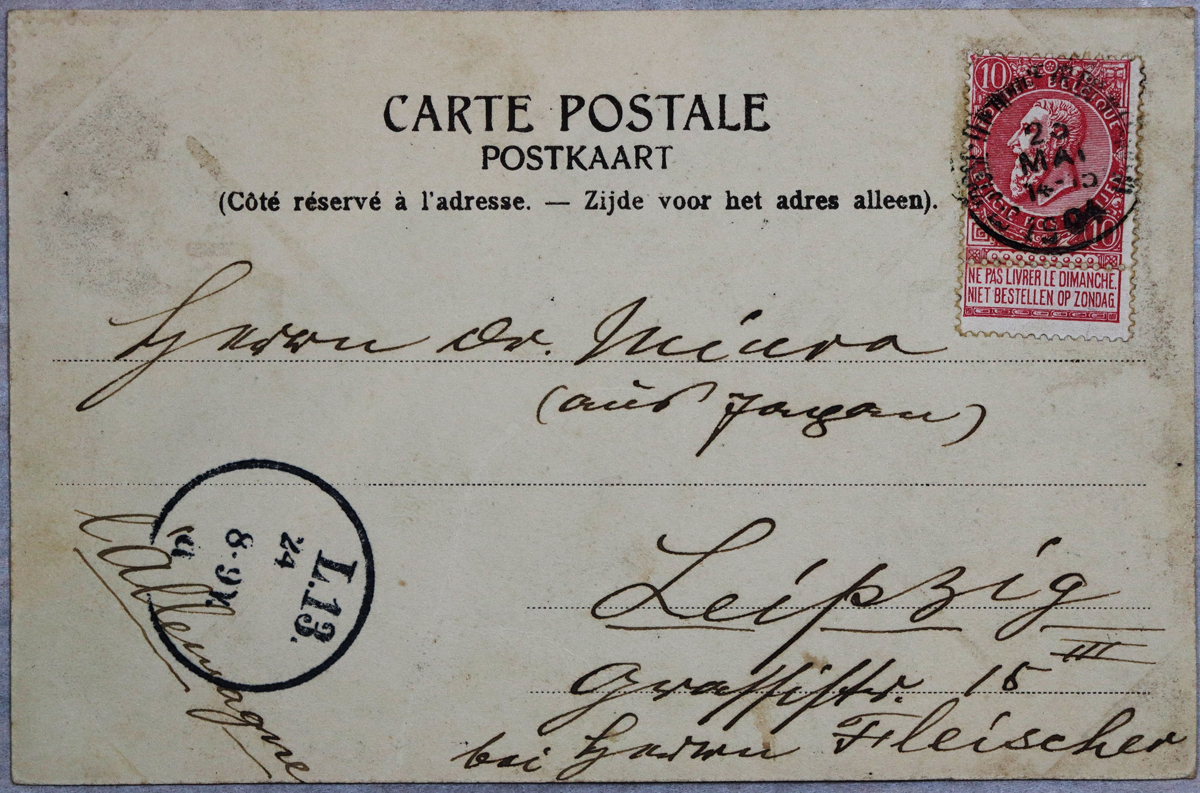 CARTE POSTALE
POSTKAART
(Côté réservé à l'adresse. — Zijde voor het adres alleen).
10 BELGIQUE 10
23
MAI
14-15
1904
NE PAS LIVRER LE DIMANCHE.
NIET BESTELLEN OP ZONDAG.
Herrn Dr. Miura
(aus Japan)
L.13.
24
8-9V.
l'Allemagne
Leipzig
Grassistr. 15 III
bei Herrn Fleischer